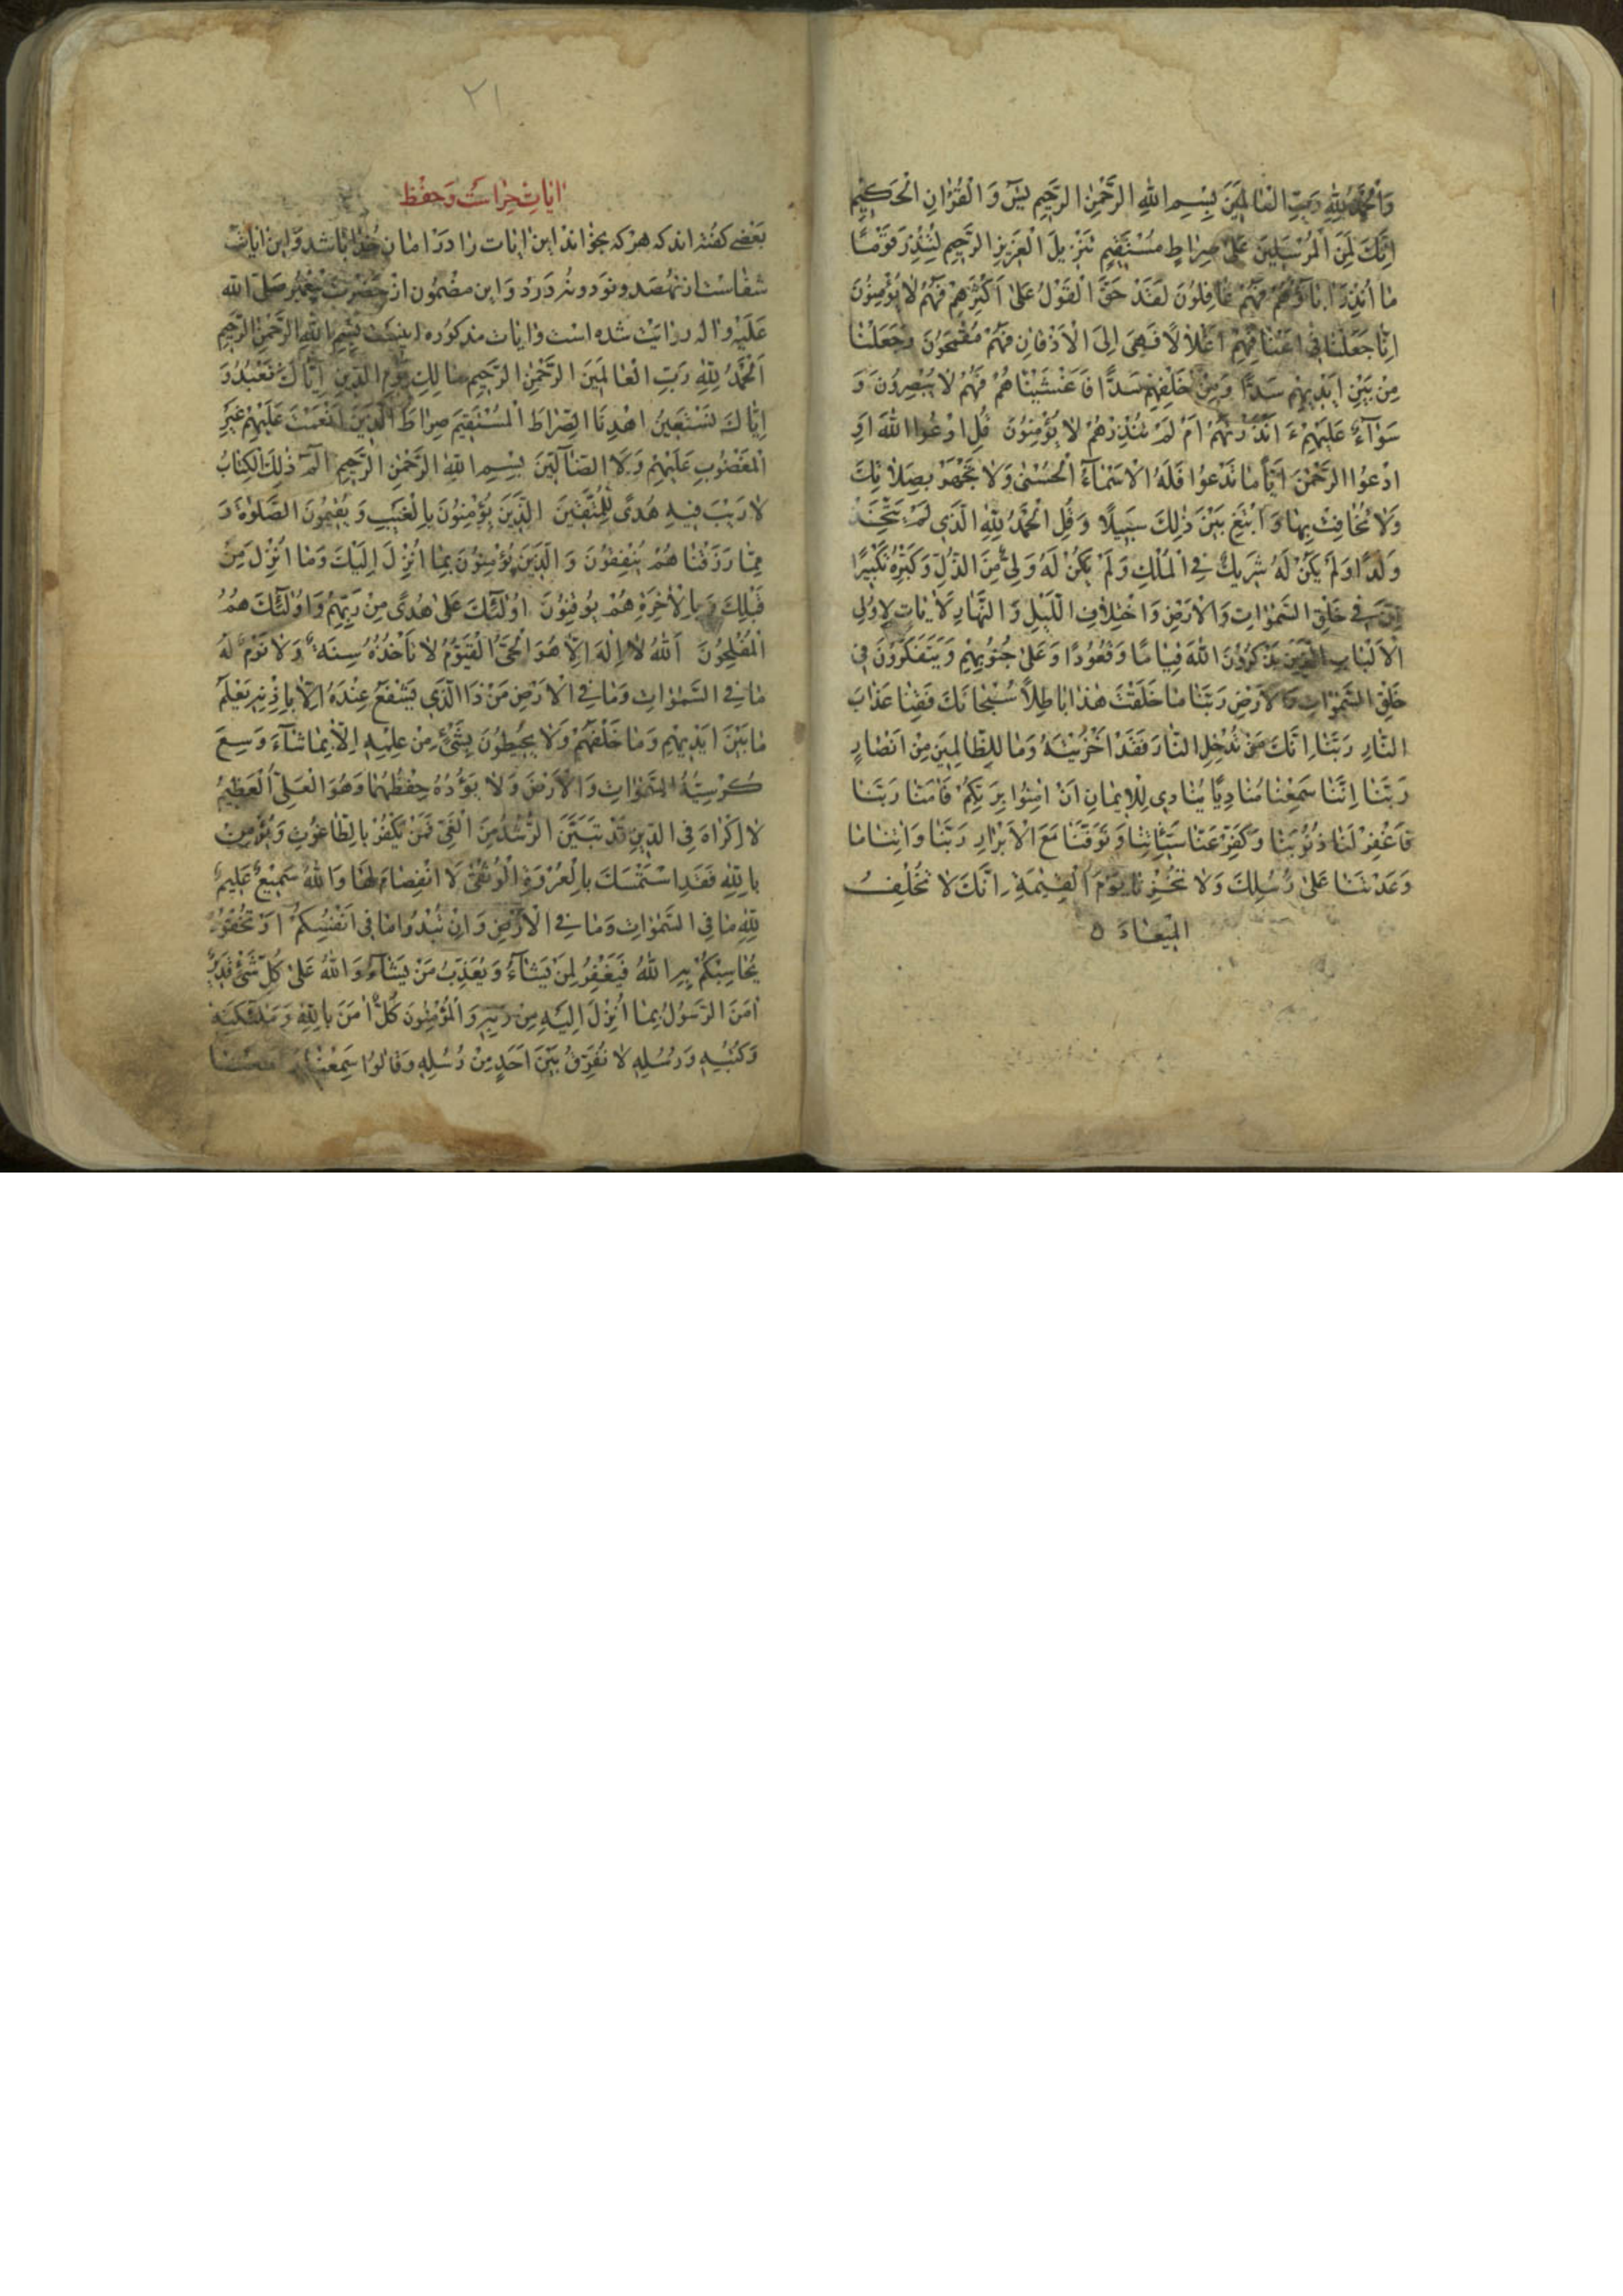 وَالْحَمْدُ لِلّٰهِ رَبِّ الْعٰالَمِينَ بِسْمِ اللّٰهِ الرَّحْمٰنِ الرَّحِيمِ يٰسٓ وَالْقُرْاٰنِ الْحَكِيمِ
اِنَّكَ لَمِنَ الْمُرْسَلِينَ عَلىٰ صِرٰاطٍ مُسْتَقِيمٍ تَنْزِيلَ الْعَزِيزِ الرَّحِيمِ لِتُنْذِرَ قَوْمًا
مٰا اُنْذِرَ اٰبٰاؤُهُمْ فَهُمْ غٰافِلُونَ لَقَدْ حَقَّ الْقَوْلُ عَلىٰ اَكْثَرِهِمْ فَهُمْ لٰا يُؤْمِنُونَ
اِنّٰا جَعَلْنٰا فِى اَعْنٰاقِهِمْ اَغْلٰالًا فَهِىَ اِلَى الْاَذْقٰانِ فَهُمْ مُقْمَحُونَ وَجَعَلْنٰا
مِنْ بَيْنِ اَيْدِيهِمْ سَدًّا وَمِنْ خَلْفِهِمْ سَدًّا فَاَغْشَيْنٰاهُمْ فَهُمْ لٰا يُبْصِرُونَ وَ
سَوٰآءٌ عَلَيْهِمْ ءَاَنْذَرْتَهُمْ اَمْ لَمْ تُنْذِرْهُمْ لٰا يُؤْمِنُونَ قُلِ ادْعُوا اللّٰهَ اَوِ
ادْعُوا الرَّحْمٰنَ اَيًّا مٰا تَدْعُوا فَلَهُ الْاَسْمٰآءُ الْحُسْنىٰ وَلٰا تَجْهَرْ بِصَلٰاتِكَ
وَلٰا تُخٰافِتْ بِهٰا وَابْتَغِ بَيْنَ ذٰلِكَ سَبِيلًا وَقُلِ الْحَمْدُ لِلّٰهِ الَّذِى لَمْ يَتَّخِذْ
وَلَدًا وَلَمْ يَكُنْ لَهُ شَرِيكٌ فِى الْمُلْكِ وَلَمْ يَكُنْ لَهُ وَلِىٌّ مِنَ الذُّلِّ وَكَبِّرْهُ تَكْبِيرًا
اِنَّ فِى خَلْقِ السَّمٰوٰاتِ وَالْاَرْضِ وَاخْتِلٰافِ اللَّيْلِ وَالنَّهٰارِ لَاٰيٰاتٍ لِاُولِى
الْاَلْبٰابِ الَّذِينَ يَذْكُرُونَ اللّٰهَ قِيٰامًا وَقُعُودًا وَعَلىٰ جُنُوبِهِمْ وَيَتَفَكَّرُونَ فِى
خَلْقِ السَّمٰوٰاتِ وَالْاَرْضِ رَبَّنٰا مٰا خَلَقْتَ هٰذٰا بٰاطِلًا سُبْحٰانَكَ فَقِنٰا عَذٰابَ
النّٰارِ رَبَّنٰا اِنَّكَ مَنْ تُدْخِلِ النّٰارَ فَقَدْ اَخْزَيْتَهُ وَمٰا لِلظّٰالِمِينَ مِنْ اَنْصٰارٍ
رَبَّنٰا اِنَّنٰا سَمِعْنٰا مُنٰادِيًا يُنٰادِى لِلْاِيمٰانِ اَنْ اٰمِنُوا بِرَبِّكُمْ فَاٰمَنّٰا رَبَّنٰا
فَاغْفِرْ لَنٰا ذُنُوبَنٰا وَكَفِّرْ عَنّٰا سَيِّئٰاتِنٰا وَتَوَفَّنٰا مَعَ الْاَبْرٰارِ رَبَّنٰا وَاٰتِنٰا مٰا
وَعَدْتَنٰا عَلىٰ رُسُلِكَ وَلٰا تُخْزِنٰا يَوْمَ الْقِيٰمَةِ اِنَّكَ لٰا تُخْلِفُ
الْمِيعٰادَ ٥
٢١
اٰيٰاتِ حِرٰاسَتْ وَحِفْظ
بَعْضِى كفتهاند كه هر كه بخواند اين اٰيٰات رٰا در اَمٰان خُدٰا بٰاشد و اين اٰيٰات
شفٰاست از نهصد و نود و نُه دَرْد وَ اين مضمُون از حَضْرت پيغمبر صَلَّى اللّٰه
عَلَيْهِ وَاٰله روٰايَتْ شده است وَ اٰيٰات مذكُوره اينست بِسْمِ اللّٰهِ الرَّحْمٰنِ الرَّحِيمِ
اَلْحَمْدُ لِلّٰهِ رَبِّ الْعٰالَمِينَ الرَّحْمٰنِ الرَّحِيمِ مٰالِكِ يَوْمِ الدِّينِ اِيّٰاكَ نَعْبُدُ وَ
اِيّٰاكَ نَسْتَعِينُ اهْدِنَا الصِّرٰاطَ الْمُسْتَقِيمَ صِرٰاطَ الَّذِينَ اَنْعَمْتَ عَلَيْهِمْ غَيْرِ
الْمَغْضُوبِ عَلَيْهِمْ وَلَا الضّٰآلِّينَ بِسْمِ اللّٰهِ الرَّحْمٰنِ الرَّحِيمِ الٓمٓ ذٰلِكَ الْكِتٰابُ
لٰا رَيْبَ فِيهِ هُدًى لِلْمُتَّقِينَ الَّذِينَ يُؤْمِنُونَ بِالْغَيْبِ وَيُقِيمُونَ الصَّلٰوةَ وَ
مِمّٰا رَزَقْنٰاهُمْ يُنْفِقُونَ وَالَّذِينَ يُؤْمِنُونَ بِمٰا اُنْزِلَ اِلَيْكَ وَمٰا اُنْزِلَ مِنْ
قَبْلِكَ وَبِالْاٰخِرَةِ هُمْ يُوقِنُونَ اُولٰٓئِكَ عَلىٰ هُدًى مِنْ رَبِّهِمْ وَاُولٰٓئِكَ هُمُ
الْمُفْلِحُونَ اَللّٰهُ لٰا اِلٰهَ اِلّٰا هُوَ الْحَىُّ الْقَيُّومُ لٰا تَأْخُذُهُ سِنَةٌ وَلٰا نَوْمٌ لَهُ
مٰا فِى السَّمٰوٰاتِ وَمٰا فِى الْاَرْضِ مَنْ ذَا الَّذِى يَشْفَعُ عِنْدَهُ اِلّٰا بِاِذْنِهِ يَعْلَمُ
مٰا بَيْنَ اَيْدِيهِمْ وَمٰا خَلْفَهُمْ وَلٰا يُحِيطُونَ بِشَىْءٍ مِنْ عِلْمِهِ اِلّٰا بِمٰا شٰآءَ وَسِعَ
كُرْسِيُّهُ السَّمٰوٰاتِ وَالْاَرْضَ وَلٰا يَؤُدُهُ حِفْظُهُمٰا وَهُوَ الْعَلِىُّ الْعَظِيمُ
لٰا اِكْرٰاهَ فِى الدِّينِ قَدْ تَبَيَّنَ الرُّشْدُ مِنَ الْغَىِّ فَمَنْ يَكْفُرْ بِالطّٰاغُوتِ وَيُؤْمِنْ
بِاللّٰهِ فَقَدِ اسْتَمْسَكَ بِالْعُرْوَةِ الْوُثْقىٰ لَا انْفِصٰامَ لَهٰا وَاللّٰهُ سَمِيعٌ عَلِيمٌ
لِلّٰهِ مٰا فِى السَّمٰوٰاتِ وَمٰا فِى الْاَرْضِ وَاِنْ تُبْدُوا مٰا فِى اَنْفُسِكُمْ اَوْ تُخْفُوهُ
يُحٰاسِبْكُمْ بِهِ اللّٰهُ فَيَغْفِرُ لِمَنْ يَشٰآءُ وَيُعَذِّبُ مَنْ يَشٰآءُ وَاللّٰهُ عَلىٰ كُلِّ شَىْءٍ قَدِيرٌ
اٰمَنَ الرَّسُولُ بِمٰا اُنْزِلَ اِلَيْهِ مِنْ رَبِّهِ وَالْمُؤْمِنُونَ كُلٌّ اٰمَنَ بِاللّٰهِ وَمَلٰٓئِكَتِهِ
وَكُتُبِهِ وَرُسُلِهِ لٰا نُفَرِّقُ بَيْنَ اَحَدٍ مِنْ رُسُلِهِ وَقٰالُوا سَمِعْنٰا